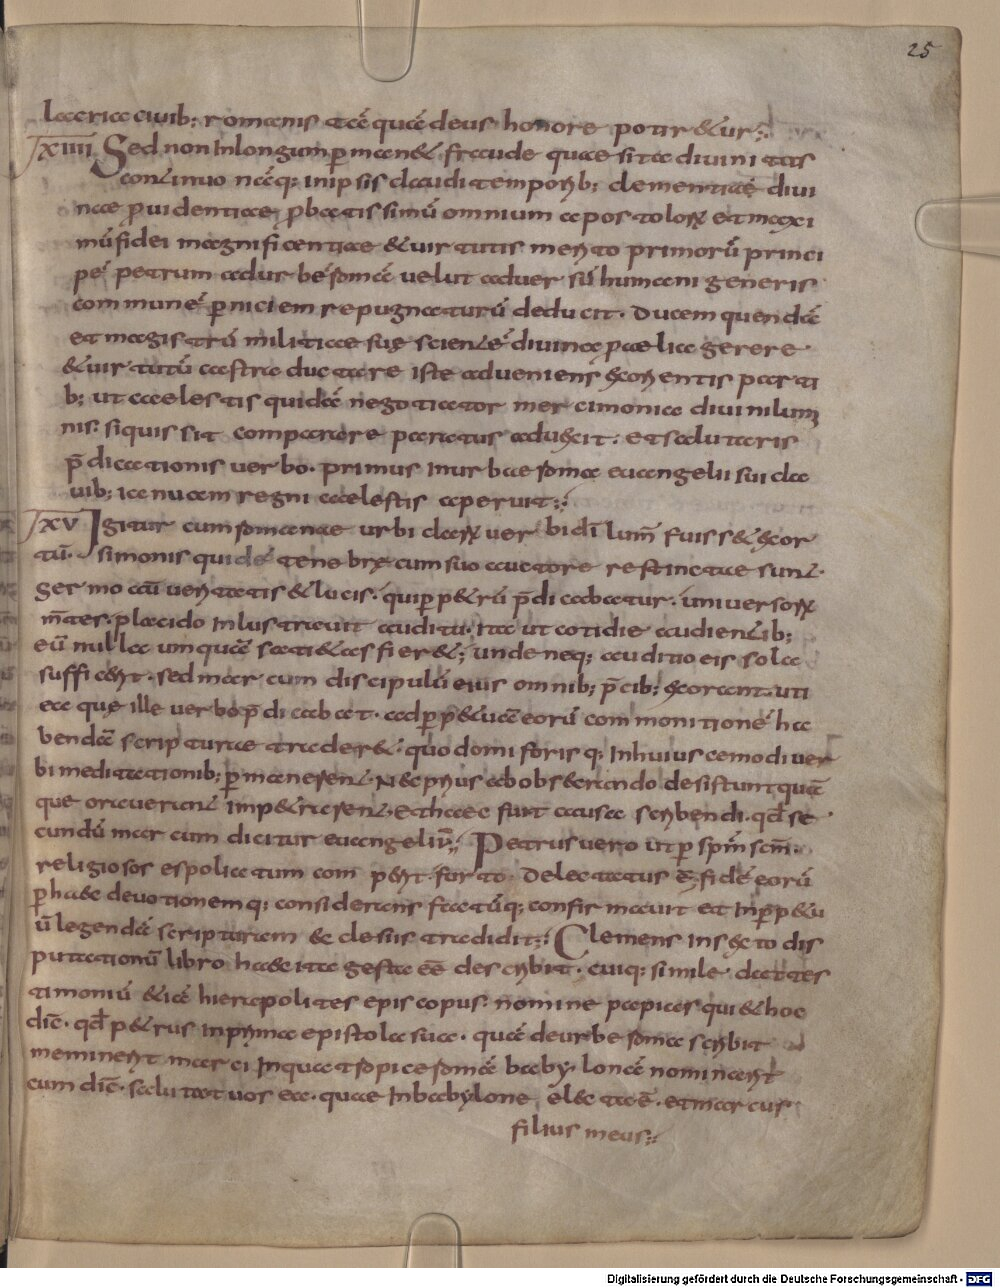 25
lacria ciuib; romanis acē quā deus honore potir&ur;
XIIII Sed non In longum ꝑman& fraude quaesita diuinitas
continuo nāq; in ipsis claudi temporib; clementiae diui
nae ꝓuidentiae ꝓbatissimū omnium apostoloꝝ et maxi
mū fidei magnificentiae &uirtutis merito primorū princi
pē petrum ad urbē romā uelut aduersū humani generis
communē ꝑniciem repugnaturū deducit. Ducem quendā
et magistrū militiae suę scientē diuina p̄aelia gerere
&uirtutū castra ductare iste adueniens ex orientis parti
b; ut caelestis quidā negotiator mercimonia diuini lumi
nis. siquis sit comparare paratus aduexit. et salutaris
p̄dicationis uerbo. primus in urbae roma euangelii sui cla
uib; ianuam regni caelestis aperuit;
XV Igitur cum romanae urbi claꝝ uerbi dī lum̄ fuiss& exor
tū. simonis quidē tenebrę cum suo auctore restinctae sunt.
sermo aū ueritatis &lucis. qui ꝑ petrū p̄dicabatur. uniuersoꝝ
m̄tes. placido Inlustrauit auditu. Ita ut cotidie audientib;
eū nulla umquā satietas fier&; unde neq; auditio eis sola
sufficeret. sed marcum discipulū eius omnib; p̄cib; exorant. uti
ea quę ille uerbo p̄dicabat. ad ꝑp&uā eorū commonitionē ha
bendā scripturae trader&. quo domi forisq; In huiuscemodi uer
bi meditationib; ꝑmanerent. Nec prius ab obsecrando desistunt quā
que orauerant Imp&rarent. et haec fuit causa scribendi. qd̄ se
cundū marcum dicitur euangeliū; Petrus uero ut ꝑ sp̄m sc̄m.
religiosos espoliatum comperit furto. Delectatus ē fidē eorū
ꝑ haec deuotionemq; considerans factūq; confirmauit et In ꝑp&u
ū legendā scripturam ecclesiis tradidit; Clemens in sexto dis
putationū libro haec ita gesta eē describit. cuiq; simile dat tes
timoniū &iā hierapolites episcopus. nomine papias qui & hoc
dic̄. qd̄ p&rus in prima epistola sua. quā de urbe roma scribit
meminerit marci In qua tropice romā baby.lonā nominarit
cum dic̄. salutat uos ea. quae In babylone electa ē. et marcus
filius meus;
Digitalisierung gefördert durch die Deutsche Forschungsgemeinschaft - DFG